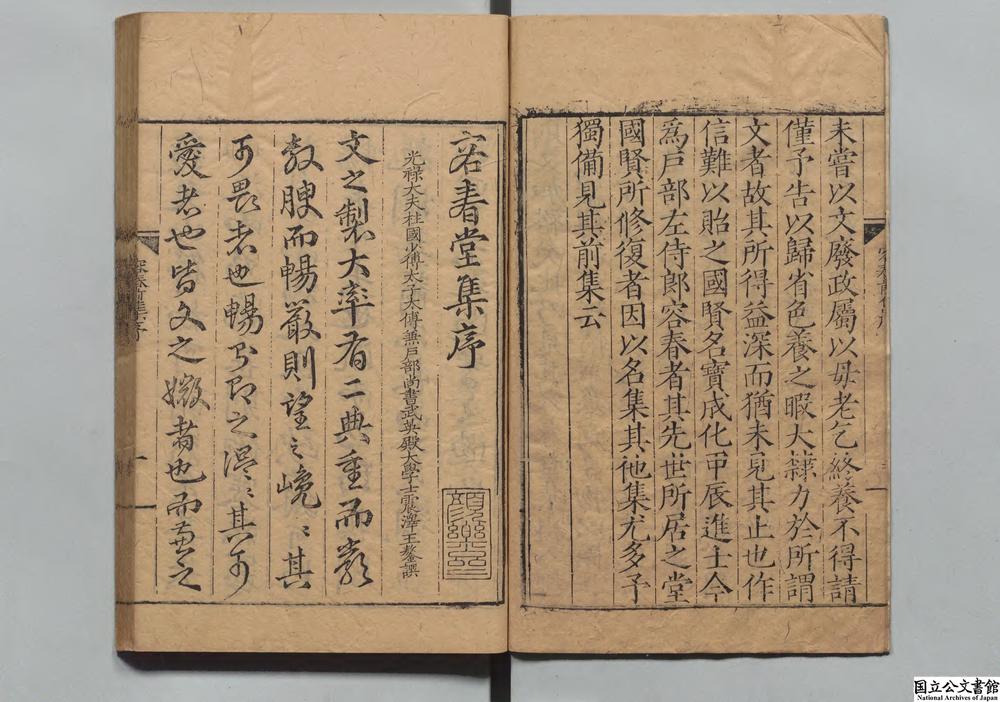 未嘗以文廢政屬以母老乞終養不得請
僅予告以歸省色養之暇大肆力於所謂
文者故其所得益深而猶未見其止也作
信難以貽之國賢名寶成化甲辰進士今
爲戶部左侍郎容春者其先世所居之堂
國賢所修復者因以名集其他集尤多予
獨備見其前集云
容春堂集序
光祿大夫柱國少傅太子太傅兼戶部尚書武英殿大學士震澤王鏊譔
文之製大率有二典重而嚴
敦腴而暢嚴則望之巉〻其
可畏者也暢焉即之溫〻其可
愛者也皆文之媺者也而兼之
国立公文書館
National Archives of Japan